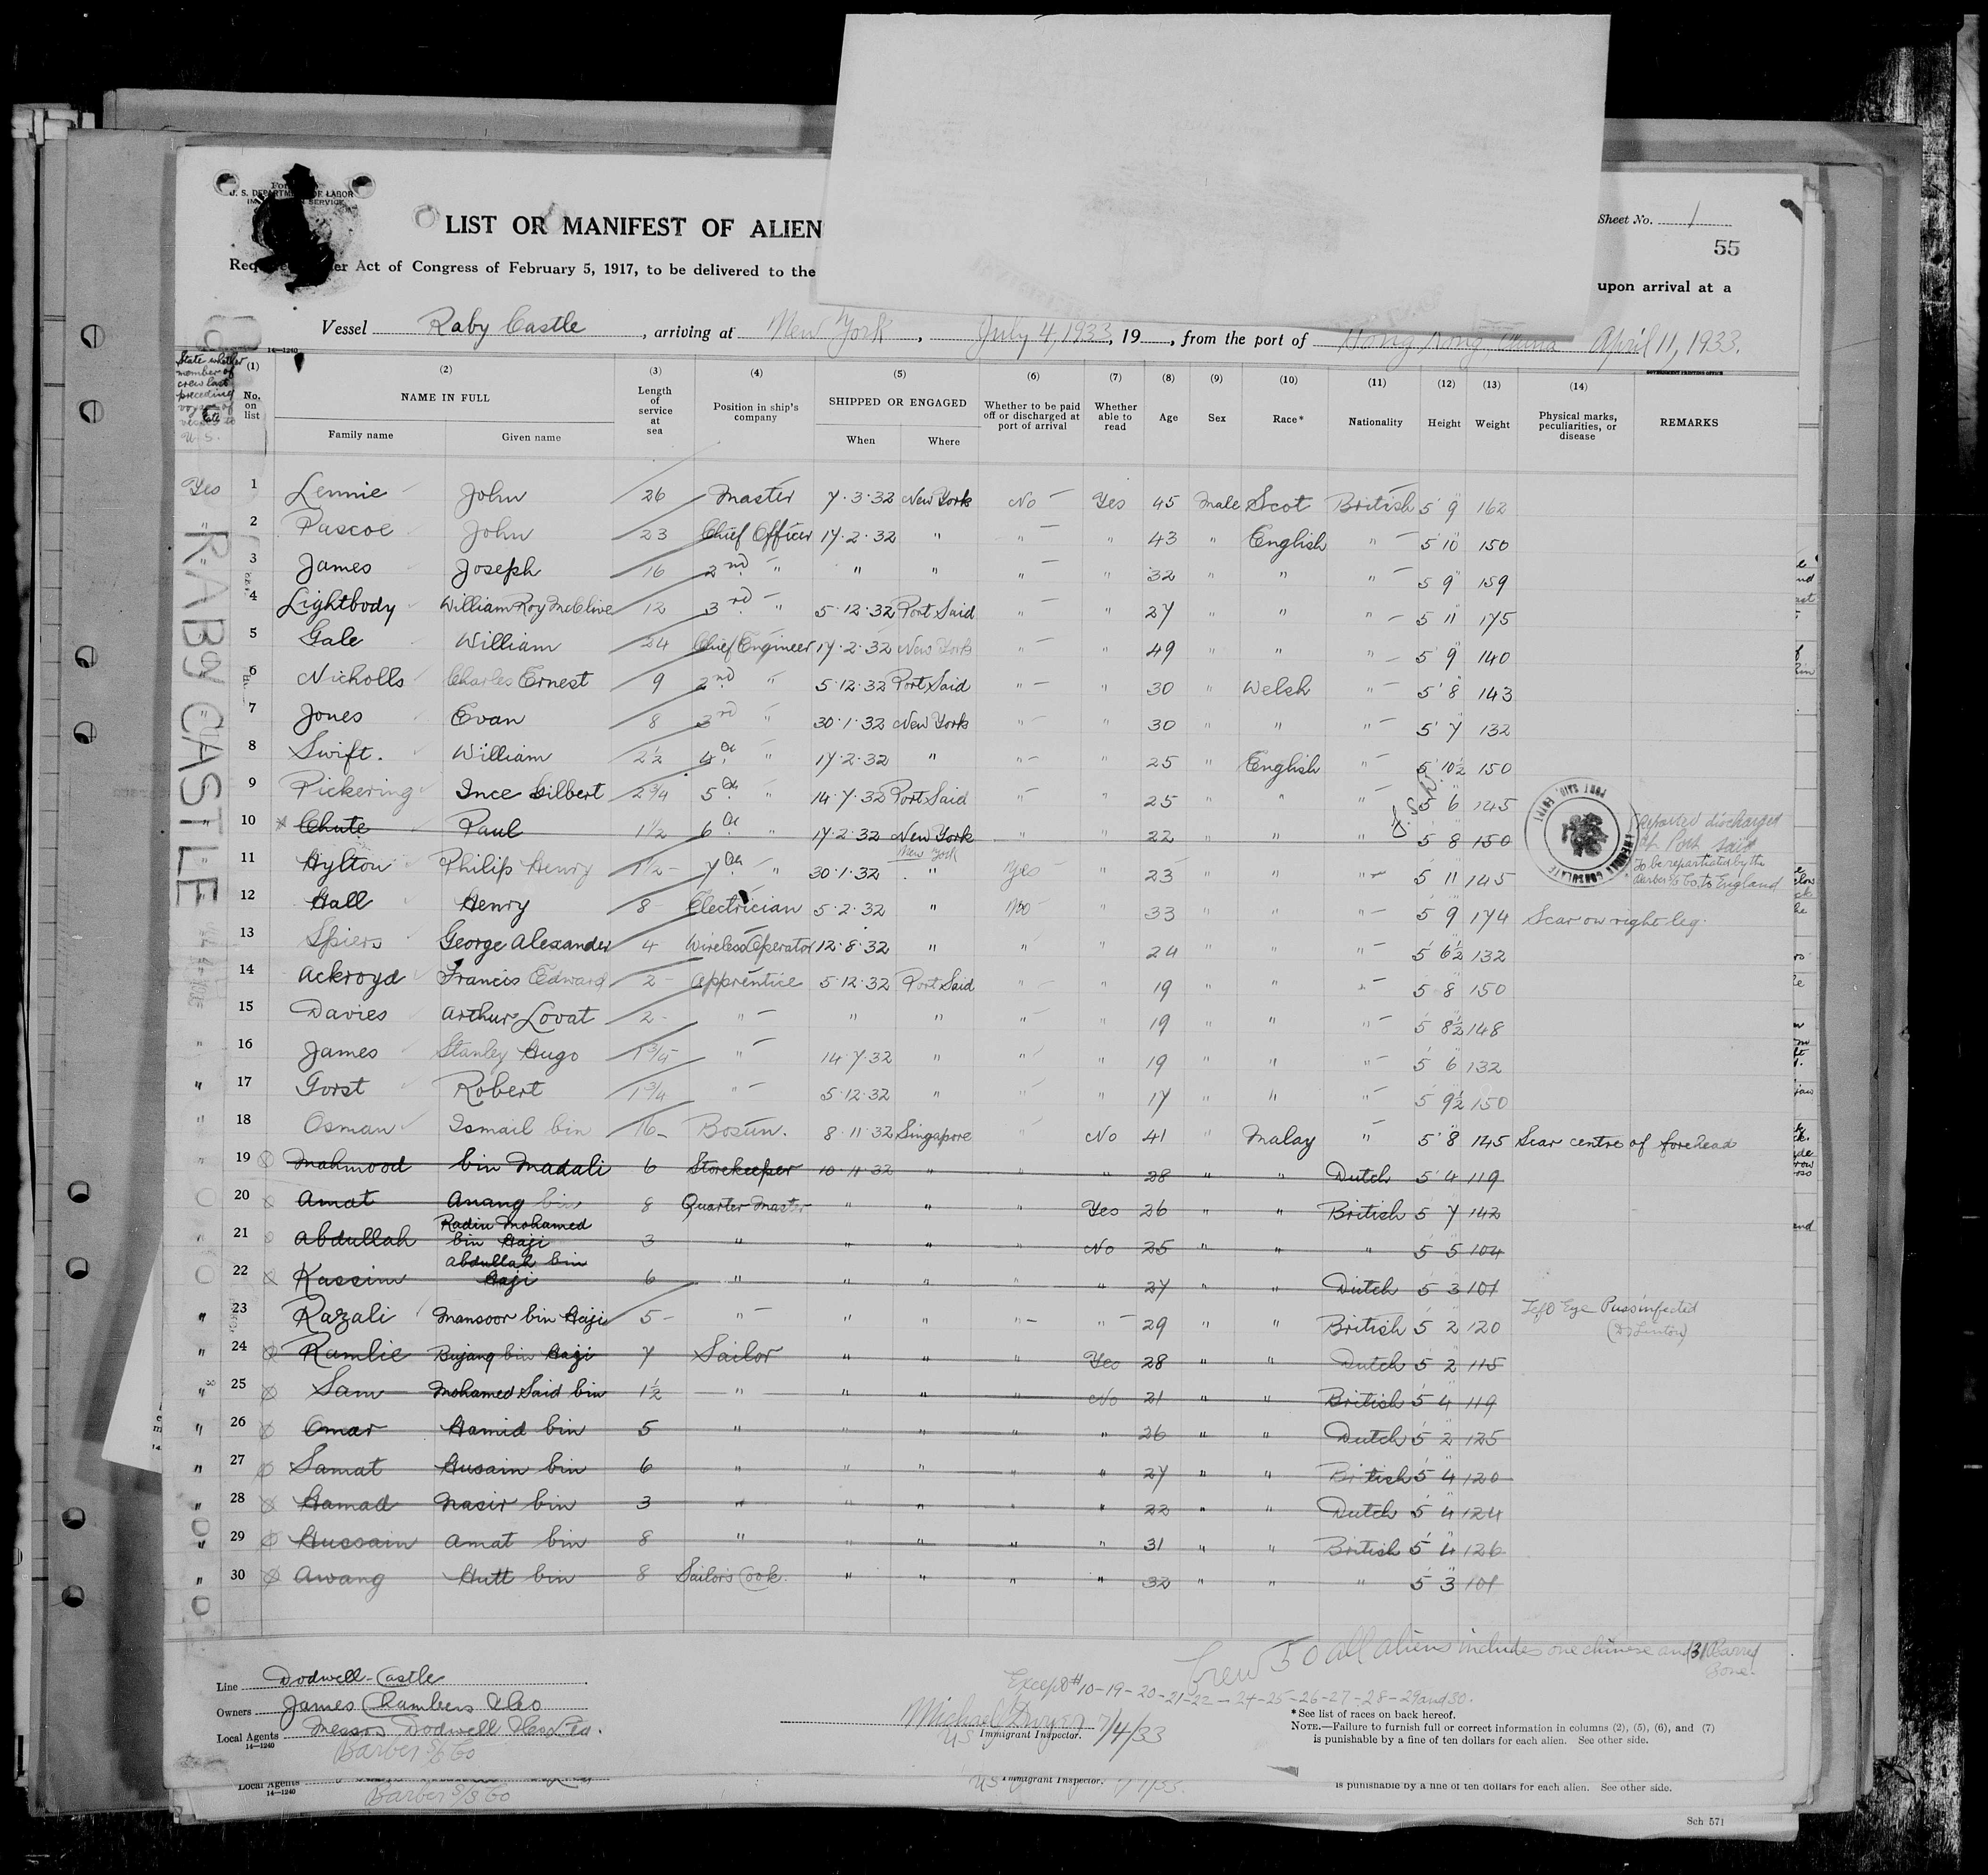 Form
J. S. DEPARTM OF LABOR
IM N SERVICE
LIST OR MANIFEST OF ALIEN
Sheet No. 1
55
Req er Act of Congress of February 5, 1917, to be delivered to the
upon arrival at a
Vessel Raby Castle , arriving at New York , July 4, 1933, 19 , from the port of Hong Kong, China April 11, 1933.
14—1240
GOVERNMENT PRINTING OFFICE
State whether member of crew last preceding voyage of vessel to U.S.
(1) (2) (3) (4) (5) (6) (7) (8) (9) (10) (11) (12) (13) (14)
No. on list NAME IN FULL Length of service at sea Position in ship's company SHIPPED OR ENGAGED Whether to be paid off or discharged at port of arrival Whether able to read Age Sex Race* Nationality Height Weight Physical marks, peculiarities, or disease REMARKS
Family name Given name When Where
RABY CASTLE
Yes 1 Lennie John 26 Master 7.3.32 New York No Yes 45 Male Scot British 5 9 162
" 2 Pascoe John 23 Chief Officer 17.2.32 " " " 43 " English " 5 10 150
3 James Joseph 16 2nd " " " " " 32 " " " 5 9 159
4 Lightbody William Roy McClive 12 3rd " 5.12.32 Port Said " " 27 " " " 5 11 175
5 Gale William 24 Chief Engineer 17.2.32 New York " " 49 " " " 5 9 140
6 Nicholls Charles Ernest 9 2nd " 5.12.32 Port Said " " 30 " Welsh " 5 8 143
7 Jones Evan 8 3rd " 30.1.32 New York " " 30 " " " 5 7 132
8 Swift. William 2½ 4th " 17.2.32 " " " 25 " English " 5 10½ 150
9 Pickering Ince Gilbert 2¾ 5th " 14.7.32 Port Said " " 25 " " " 5 6 145
10 Chute Paul 1½ 6th " 17.2.32 New York " " 22 " " " 5 8 150
Reported discharged at Port Said
New York
11 Hylton Philip Henry 1½ 7th " 30.1.32 " Yes " 23 " " " 5 11 145
To be repatriated by the Barber S/S Co. to England
12 Hall Henry 8 Electrician 5.2.32 " No " 33 " " " 5 9 174 Scar on right leg.
13 Spiers George Alexander 4 Wireless Operator 12.8.32 " " " 24 " " " 5 6½ 132
14 Ackroyd Francis Edward 2 Apprentice 5.12.32 Port Said " " 19 " " " 5 8 150
15 Davies Arthur Lovat 2 " " " " " 19 " " " 5 8½ 148
" 16 James Stanley Hugo 1¾ " 14.7.32 " " " 19 " " " 5 6 132
" 17 Gorst Robert 1¾ " 5.12.32 " " " 17 " " " 5 9½ 150
" 18 Osman Ismail bin 16 Bosun. 8.11.32 Singapore " No 41 " Malay " 5 8 145 Scar centre of forehead
" 19 Mahmood bin Madali 6 Storekeeper 10.11.32 " " " 28 " " Dutch 5 4 119
20 Amat Anang bin 8 Quarter Master " " " Yes 26 " " British 5 7 142
" 21 Abdullah Radin Mohamed bin Haji 3 " " " " No 25 " " " 5 5 104
22 Kassim Abdullah bin Haji 6 " " " " " 27 " " Dutch 5 3 101
" 23 Razali Mansoor bin Haji 5 " " " " " 29 " " British 5 2 120 Left Eye Puss infected
" 24 Ramlie Bujang bin Haji 7 Sailor " " " Yes 28 " " Dutch 5 2 115
" 25 Sam Mohamed Said bin 1½ " " " " No 21 " " British 5 4 119
" 26 Omar Hamid bin 5 " " " " " 26 " " Dutch 5 2 125
" 27 Samat Husain bin 6 " " " " " 27 " " British 5 4 120
" 28 Hamad Nasir bin 3 " " " " " 22 " " Dutch 5 4 124
" 29 Hussain Amat bin 8 " " " " " 31 " " British 5 4 126
" 30 Awang Hutt bin 8 Sailor's Cook. " " " " 32 " " " 5 3 101
Crew 50 all aliens includes one chinese and
Except # 10-19-20-21-22-24-25-26-27-28-29 and 30.
Line Dodwell-Castle
Owners James Chambers & Co
Local Agents Messrs Dodwell
14—1240
Barber S/S Co
Michael Dwyer 7/4/33
US Immigrant Inspector.
*See list of races on back hereof.
NOTE.—Failure to furnish full or correct information in columns (2), (5), (6), and (7)
is punishable by a fine of ten dollars for each alien. See other side.
Local Agents
14—1240
Barber S/S Co
US Immigrant Inspector.
is punishable by a fine of ten dollars for each alien. See other side.
Sch 571